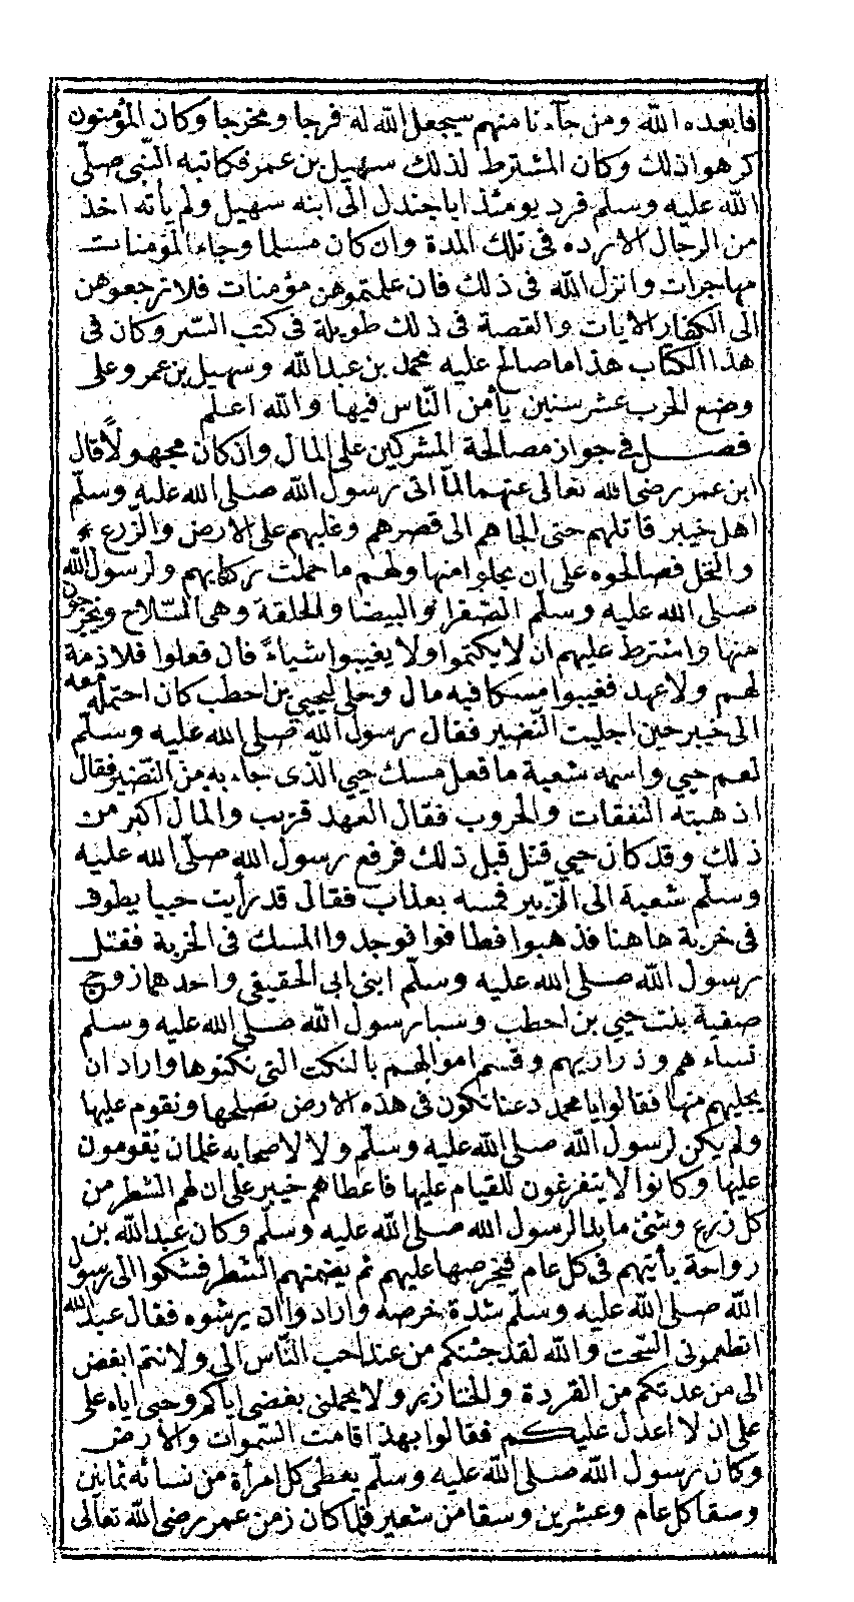 فابعده الله ومن جآءنا منهم سيجعل الله له فرجا ومخرجا وكان المؤمنون
كرهوا ذلك وكان المشترط لذلك سهيل بن عمر فكاتبه النّبى صلّى
الله عليه وسلم فرد يومئذ ابا جندل الى ابنه سهيل ولم يأته احد
من الرجال الا رده فى تلك المدة وان كان مسلما وجاء المؤمنات
مهاجرات وانزل الله فى ذلك فان علمتموهن مؤمنات فلا ترجعوهن
الى الكفار الايات والقصة فى ذلك طويلة فى كتب السّر وكان فى
هذا الكتاب هذا ما صالح عليه محمد بن عبد الله وسهيل بن عمر وعلى
وضع الحرب عشر سنين يأمن النّاس فيها والله اعلم
فصل فى جواز مصالحة المشركين على المال وان كان مجهولاً قال
ابن عمر رضى الله تعالى عنهما لمّا اتى رسول الله صلى الله عليه وسلّم
اهل خيبر قاتلهم حتى الجاهم الى قصرهم وغلبهم على الارض والزّرع
والنخل فصالحوه على ان يجلوا منها ولهم ما حملت ركابهم ولرسول الله
صلى الله عليه وسلم الصفرا والبيضا والحلقة وهى السّلاح ويخرجون
منها واشترط عليهم ان لا يكتموا ولا يغيبوا شياءً قال فعلوا فلا ذمة
لهم ولا عهد فغيبوا مسكا فيه مال وحلى لحيي بن احطب كان احتمله معه
الى خيبر حين اجليت النّضير فقال رسول الله صلى الله عليه وسلّم
لعم حيي واسمه شعبة ما فعل مسك حيي الّذى جاء به من النّضير فقال
اذهبته النفقات والحروب فقال العهد قريب والمال اكبر من
ذلك وقد كان حيي قتل قبل ذلك فرفع رسول الله صلّى الله عليه
وسلّم شعبة الى الزّبير فمسه بعذاب فقال قد رأيت حييا يطوف
فى خربة هاهنا فذهبوا فطافوا فوجدوا المسك فى الخربة فقتل
رسول الله صلى الله عليه وسلّم ابنى ابى الحقيقى واحدهما زوج
صفية بنت حيي بن احطب وسبا رسول الله صلى الله عليه وسلم
نساءهم وذراريهم وقسم اموالهم بالنكث التى نكثوها واراد ان
يجليهم منها فقالوا يا محمد دعنا نكون فى هذه الارض نصلحها ونقوم عليها
ولم يكن لرسول الله صلى الله عليه وسلّم ولا لاصحابه غلمان يقومون
عليها وكانوا لا يتفرغون للقيام عليها فاعطاهم خيبر على ان لهم الشطر من
كل زرع وشئ ما بدا لرسول الله صلى الله عليه وسلّم وكان عبد الله بن
رواحة يأتيهم فى كل عام فيخرصها عليهم ثم يضمنهم الشطر فشكوا الى رسول
الله صلى الله عليه وسلّم شدة خرصه وارادوا ان يرشوه فقال عبد الله
اتطعمونى السّحت والله لقد جئتكم من عند احب النّاس الى ولانتم ابغض
الى من عدتكم من القردة والخنازير ولا يحملنى بغضى اياكم وحبى اياه على
على ان لا اعدل عليكم فقالوا بهذا قامت السّموات والارض
وكان رسول الله صلى الله عليه وسلّم يعطى كل امرأة من نسائه ثمانين
وسقا كل عام وعشرين وسقا من شعير فلما كان زمن عمر رضى الله تعالى